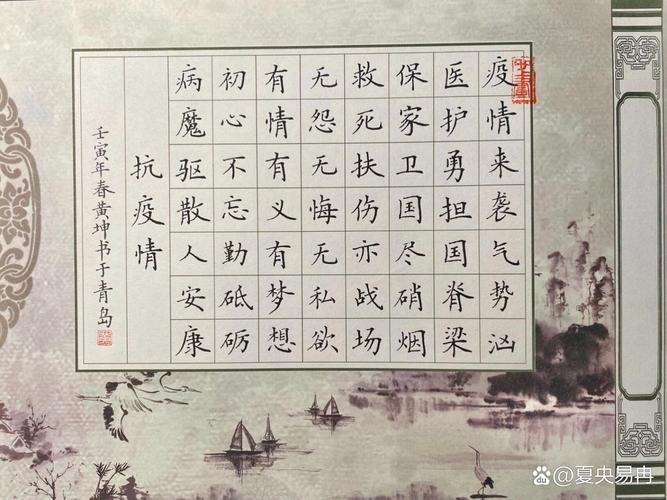 疫情来袭气势汹
医护勇担国脊梁
保家卫国尽硝烟
救死扶伤亦战场
无怨无悔无私欲
有情有义有梦想
初心不忘勤砥砺
病魔驱散人安康
抗疫情
壬寅年春黄坤书于青岛
Bai度@夏央易冉